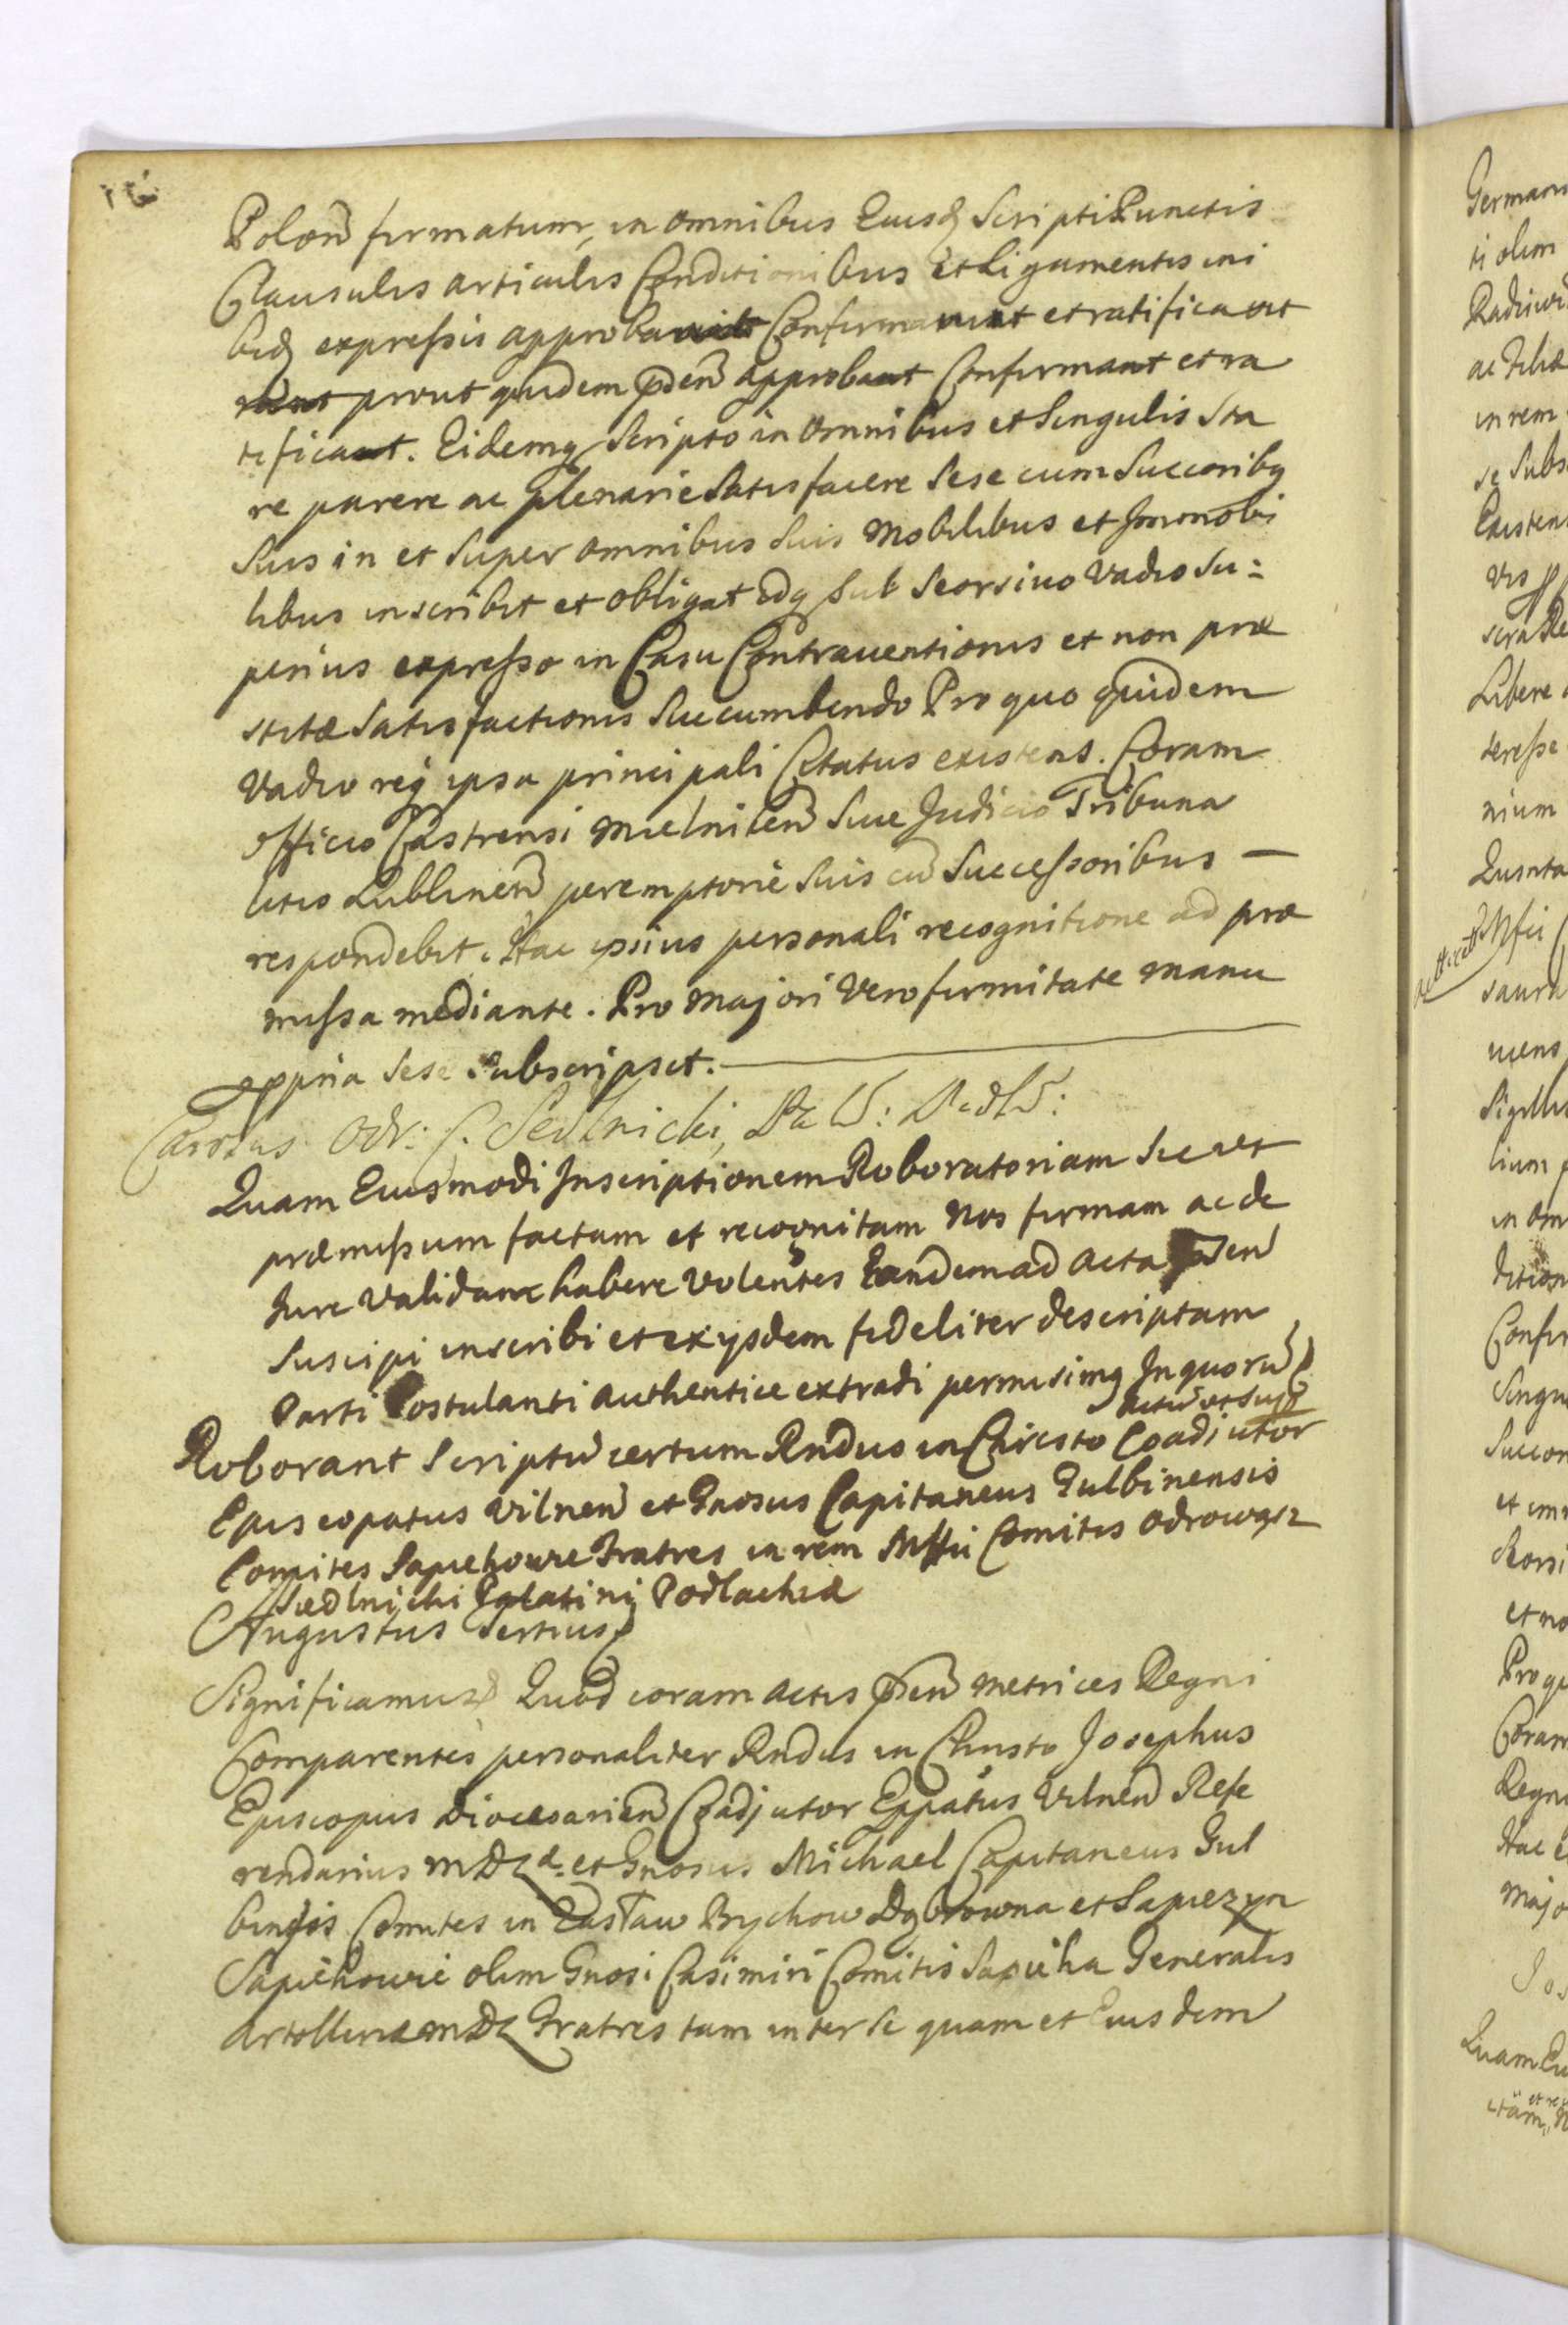 Polon̄ firmatum, in omnibus Eiusq Scripti Punctis
Clausulis articulis Conditionibus et Ligamentis ini
bidq expressis approbavit Confirmavit et ratificavit
prout quidem p̄den̄ approbat Confirmat et ra
tificat. Eidemq Scripto in omnibus et Singulis Sta
re parere ac plenarie Satisfacere Sese cum Succoribq
Suis in et Super omnibus Suis Mobilibus et Immobi
libus inscribit et obligat idq Sub Seorsivo Vadio Su=
perius expresso in Casu Contraventionis et non præ
stitæ Satisfactionis Succumbendo Pro quo quidem
Vadio req ipsa principali Citatus existens. Coram
officio Castrensi Mielnicen̄ Sive Judicio Tribuna
litio Lublinen̄ peremptorie Suis cū Successoribus —
respondebit. Hac ipsius personali recognitione ad præ
missa mediante. Pro Majori Vero firmitate manu
ppria Sese Subscripsit.
Carolus Odr: C. Sedlnicki, Pa W: Podl:
Quam Eiusmodi Inscriptionem Roboratoriam Sicut
præmissum factam et recognitam Nos firmam ac de
Jure Validam habere Volentes Eandem ad Acta p̄sen̄
Suscipi inscribi et ex ijsdem fideliter descriptam
Parti Postulanti authentice extradi permisimq In quorū
Actū ut Supr
Roborant Scriptū certum Rndus in Christo Coadiutor
Episcopatus Vilnen̄ et Gnosus Capitaneus Gulbinensis
Comites Sapiehowie Fratres in rem Mffci Comitis Odrowąsz
Siedlnicki Palatini Podlachiæ
Augustus Tertius
Significamus Quod coram Actis p̄sen̄ Metrices Regni
Comparentes personaliter Rndus in Christo Josephus
Episcopus Diocesarien̄ Coadjutor Eppatus Vilnen̄ Refe
rendarius MDL et Gnosus Michael Capitaneus Gul
binsis Comites in Zasław Bychow Dąbrowna et Sapiezyn
Sapiehowie olim Gnosi Casimiri Comitis Sapieha Generalis
Artolleriæ MDL Fratres tam inter se quam et Eiusdem